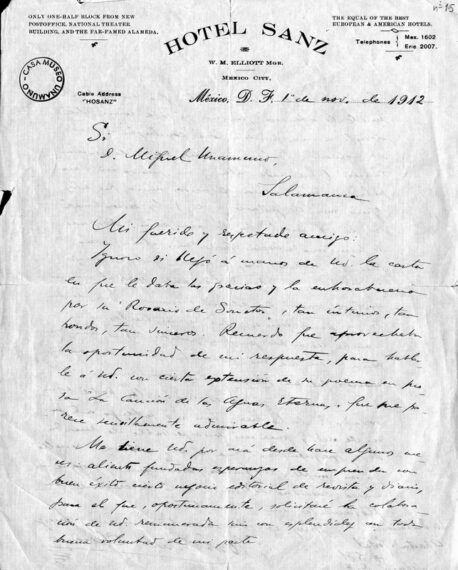 nº 15
ONLY ONE-HALF BLOCK FROM NEW
POSTOFFICE, NATIONAL THEATER
BUILDING, AND THE FAR-FAMED ALAMEDA.
THE EQUAL OF THE BEST
EUROPEAN & AMERICAN HOTELS.
Telephones
Mex. 1602
Eric. 2007.
HOTEL SANZ
W. M. ELLIOTT MGR.
MEXICO CITY.
CASA MUSEO UNAMUNO
Cable Address
"HOSANZ"
México, D. F. 1º de nov. de 1912
Sr.
D. Miguel Unamuno,
Salamanca
Mi querido y respetado amigo:
Ignoro si llegó á manos de Ud. la carta
en que le daba las gracias y la enhorabuena
por su "Rosario de Sonetos", tan íntimos, tan
hondos, tan sinceros. Recuerdo que aprovechaba
la oportunidad de mi respuesta, para hablar
le á Ud. con cierta extensión de su poema en pro
sa "La Canción de las Aguas Eternas", que me pa
rece sencillamente admirable.
Me tiene Ud. por acá desde hace algunos me
ses; aliento fundadas esperanzas de emprender con
buen éxito cierto negocio editorial de revista y diario,
para el que, oportunamente, solicitaré la colabora
ción de Ud. remunerada sino con esplendidez con toda
buena voluntad de mi parte